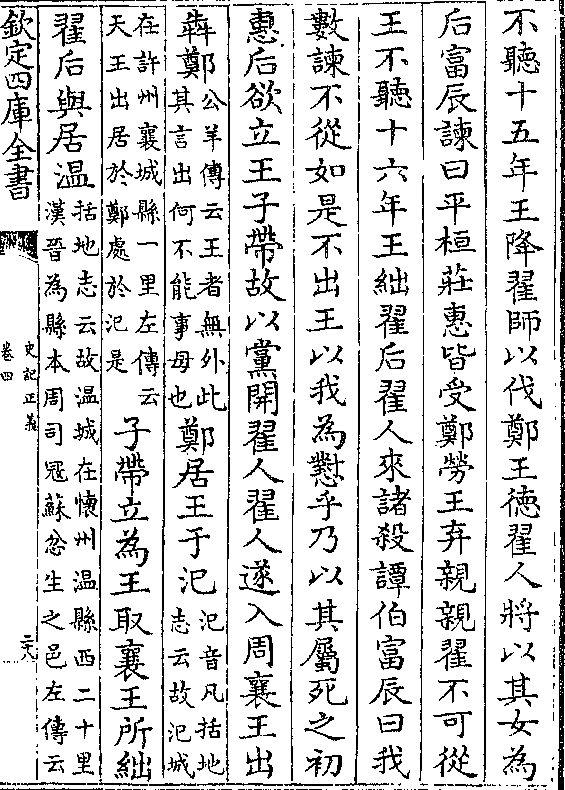 不聽十五年王降翟師以伐鄭王徳翟人將以其女為
后富辰諫曰平桓莊惠皆受鄭勞王弃親親翟不可從
王不聽十六年王絀翟后翟人來誅殺譚伯富辰曰我
數諫不從如是不出王以我為懟乎乃以其屬死之初
惠后欲立王子帶故以黨開翟人翟人遂入周襄王出
犇鄭公羊傳云王者無外此其言出何不能事母也鄭居王于汜汜音凡括地志云故汜城
在許州襄城縣一里左傳云天王出居於鄭處於汜是子帶立為王取襄王所絀
翟后與居温括地志云故温城在懐州温縣西二十里漢晉為縣本周司冦蘇忿生之邑左傳云
欽定四庫全書
史記正義
卷四
二十八